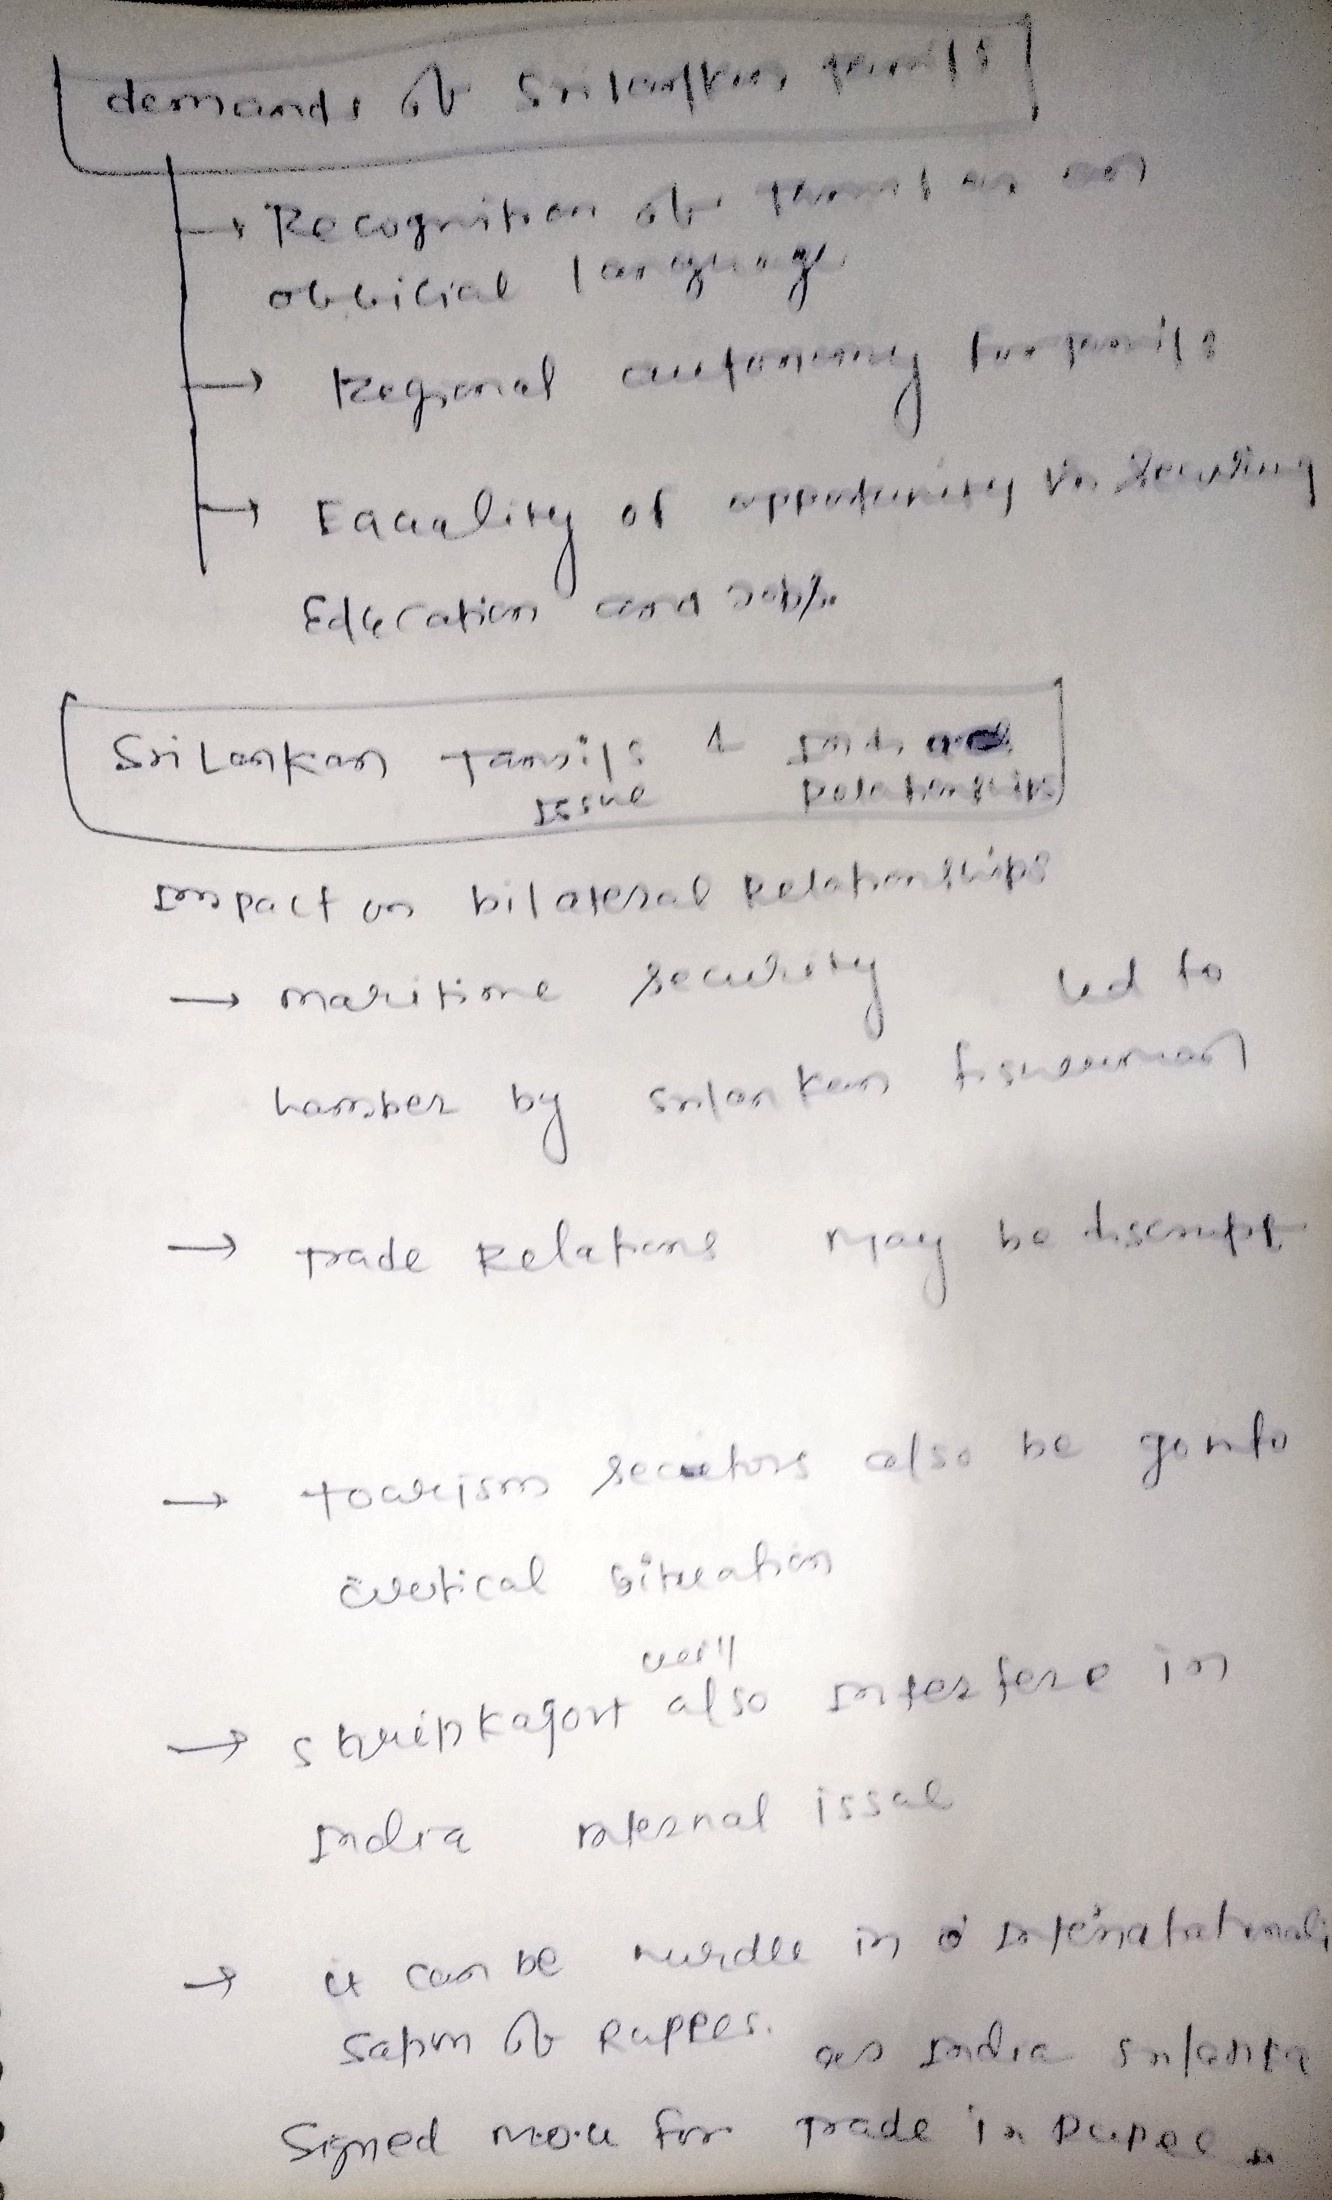 demands of Srilankan tamils
Recognition of Tamil as an
official language
Regional autonomy for tamils
Equality of opportunity in securing
Education and Jobs.
Sri Lankan Tamils &
Issue Relationships
Impact on bilateral Relationships
maritime security led to
by Srilankan fisherman
Trade Relations may be
tourism also be gonto
situation
will
also Interfere in
India internal
it can be in
of Ruppes. as India Srilanka
Signed M.O.U for Trade in Rupee